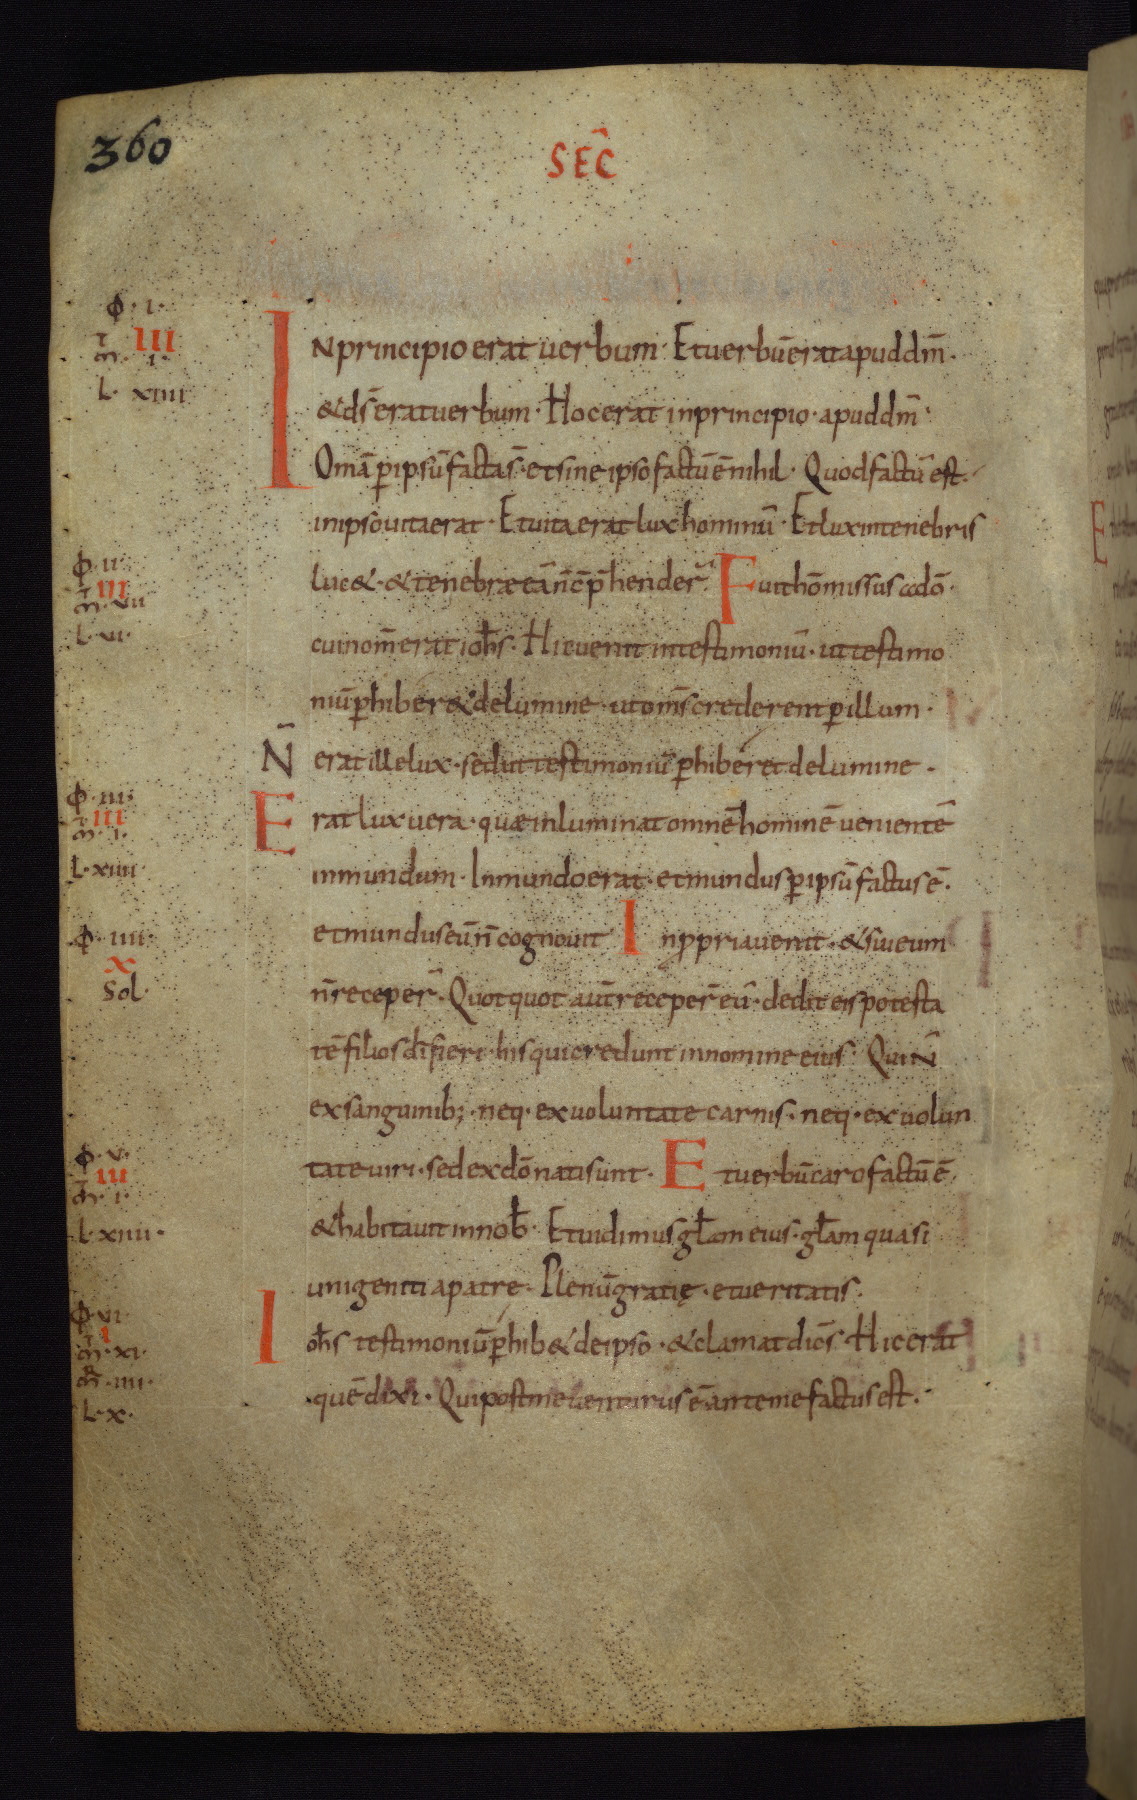 360
SEC̄
Φ · I ·
III
m̄ · I ·
L · XIIII
IN principio erat uerbum · Et uerbū erat apud dm̄ ·
& ds̄ erat uerbum · Hoc erat in principio · apud dm̄ ·
Omā p̄ ipsū facta s̄ · et sine ipso factū ē nihil · Quod factū est ·
in ipso uita erat · Et uita erat lux hominū · Et lux in tenebris
Φ · II ·
III
m̄ · VII
L · VI ·
luc& · & tenebrae eā n̄ cōp̄hender̄ · Fuit hō missus a dō ·
cui nom̄ erat ioh̄s · Hic uenit in testimoniū · ut testimo
niū p̄hiber& de lumine · ut om̄s crederent p̄ illum ·
N̄ erat ille lux · sed ut testimoniū p̄hiberet de lumine ·
Φ · III ·
III
m̄ · I ·
L · XIIII ·
Erat lux uera · quae inluminat omnē hominē uenientē
in mundum · In mundo erat · et mundus p̄ ipsū factus ē ·
Φ · IIII ·
X
Sol ·
et mundus eū n̄ cognouit · In p̄pria uenit · & sui eum
n̄ receper̄ · Quotquot aut̄ receper̄ eū · dedit eis potesta
tē filios dī fieri · his qui credunt in nomine eius · Qui N̄
ex sanguinib; · neq · ex uoluntate carnis · neq · ex uolun
Φ · V ·
III
m̄ · I ·
L · XIIII ·
tate uiri · sed ex dō nati sunt · Et uerbū caro factū ē ·
& habitauit in nob̄ · Et uidimus gl̄am eius · gl̄am quasi
unigeniti a patre · Plenū gratię · et ueritatis ·
Φ · VI ·
I
m̄ · XI ·
m̄ · IIII ·
L · X ·
Ioh̄s testimoniū p̄hib& de ipso · & clamat dicēs · Hic erat
quē dixi · Qui post me uenturus ē · ante me factus est ·